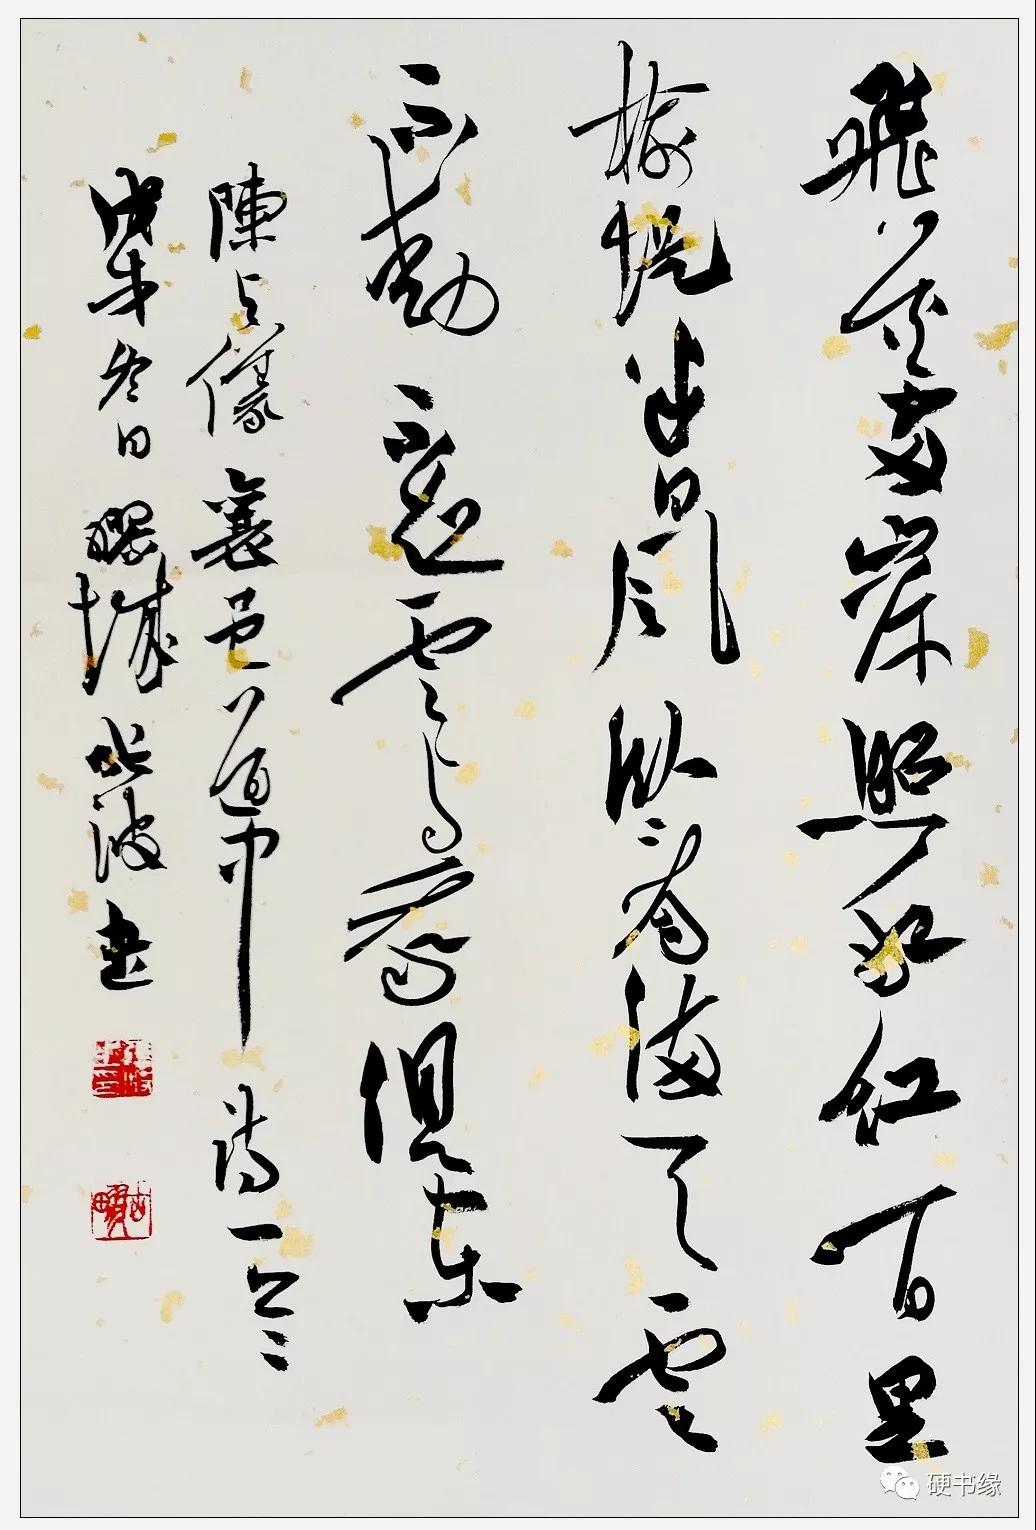 飛花兩岸照船紅百里
榆堤半日風臥看滿天雲
不動不知雲與我俱東
陳與儀襄邑道中詩一首
戊戌冬日 城 波書
硬书缘